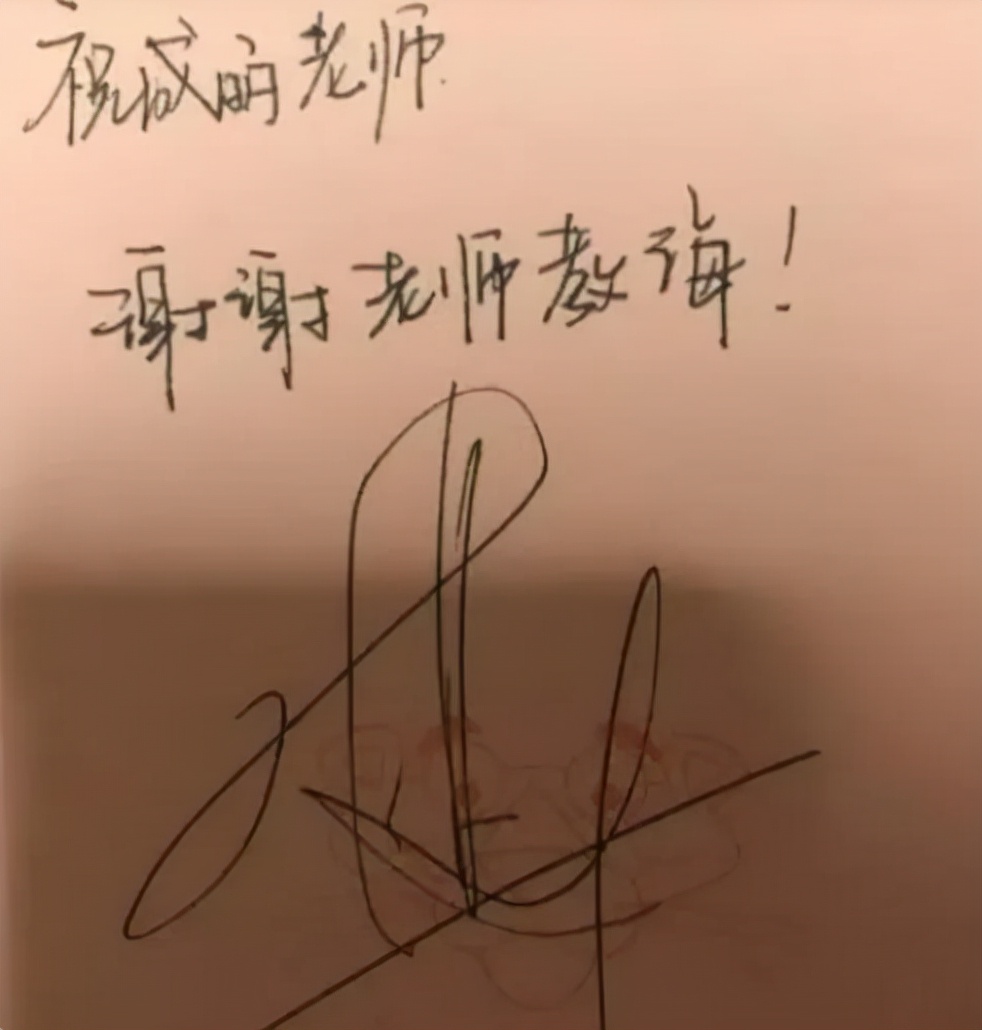 祝成明老师
谢谢老师教诲!